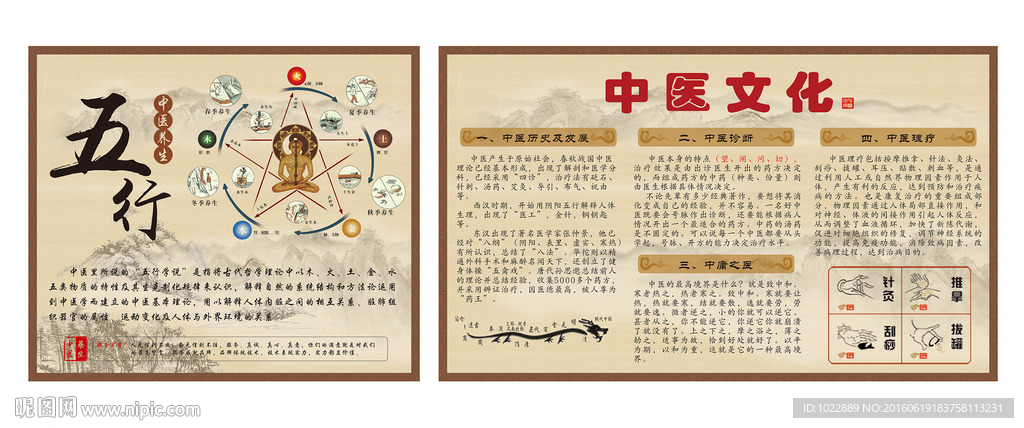 五行
中医养生
火
土
金
水
木
春季养生
夏季养生
秋季养生
冬季养生
中医里所说的“五行学说”是指将古代哲学理论中以木、火、土、金、水
五类物质的特性及其生克制化规律来认识，解释自然的系统结构和方法论运用
到中医学而建立的中医基本理论，用以解释人体内脏之间的相互关系、脏腑组
织器官的属性、运动变化及人体与外界环境的关系。
中医
养生
中医文化
一、中医历史及发展
中医产生于原始社会，春秋战国中医
理论已经基本形成，出现了解剖和医学分
科，已经采用“四诊”，治疗法有砭石、
针刺、汤药、艾灸、导引、布气、祝由
等。
西汉时期，开始用阴阳五行解释人体
生理，出现了“医工”，金针，铜钥匙
等。
东汉出现了著名医学家张仲景，他已
经对“八纲”（阴阳、表里、虚实、寒热）
有所认识，总结了“八法”。华佗则以精
通外科手术和麻醉名闻天下，还创立了健
身体操“五禽戏”。唐代孙思邈总结前人
的理论并总结经验，收集5000多个药方，
并采用辨证治疗，因医德最高，被人尊为
“药王”。
二、中医诊断
中医本身的特点（望、闻、问、切），
治疗效果是由出诊医生开出的药方决定
的，而组成药方的中药（种类、份量）则
由医生根据具体情况决定。
不论先辈有多少经典著作，要想将其消
化变成自己的经验，并不容易。一名好中
医既要会号脉作出诊断，还要能根据病人
情况开出一个最适合的药方。中医的汤药
是不固定的。可以说每一个中医都要从头
学起，号脉、开方的能力决定治疗水平。
三、中庸之医
中医的最高境界是什么？就是致中和。
寒者热之，热者寒之。致中和。寒就要让
热，热就要寒，结就要散，逸就要劳，劳
就要逸。微者逆之，小的你就可以逆它。
甚者从之，你不能逆它，你逆它你就崩溃
了就没有了。上之下之，摩之浴之，薄之
劫之，适事为故，恰到好处就好了。以平
为期，以和为重，这就是它的一种最高境
界。
四、中医理疗
中医理疗包括按摩推拿、针法、灸法、
刮痧、拔罐、耳压、贴敷、刺血等，是通
过利用人工或自然界物理因素作用于人
体，产生有利的反应，达到预防和治疗疾
病的方法，也是康复治疗的重要组成部
分。物理因素通过人体局部直接作用，和
对神经、体液的间接作用引起人体反应，
从而调整了血液循环，加快了新陈代谢，
促进对细胞组织的修复，调节神经系统的
功能，提高免疫功能，消除致病因素，改
善病理过程，达到治病目的。
针灸
推拿
刮痧
拔罐
昵图网 www.nipic.com
ID:1022889 NO:20160619183758113231